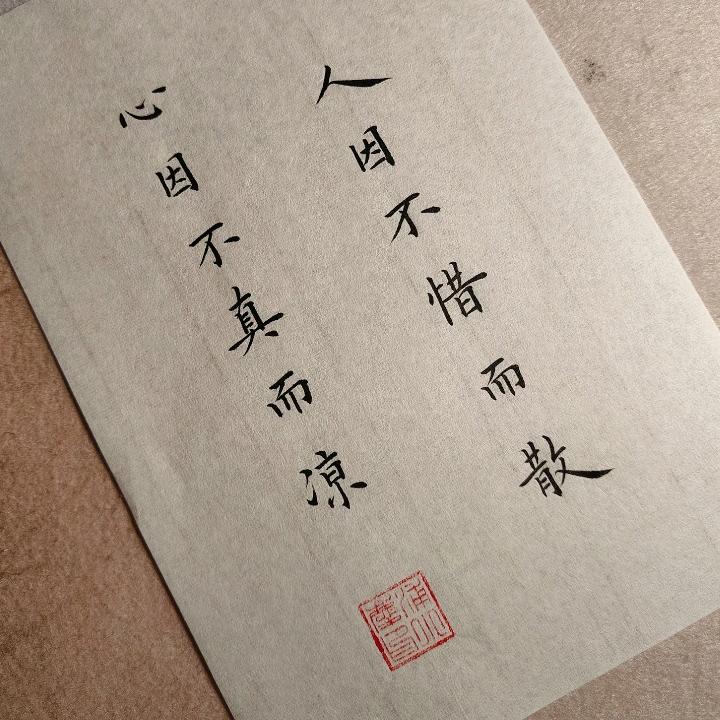 人因不惜而散
心因不真而凉